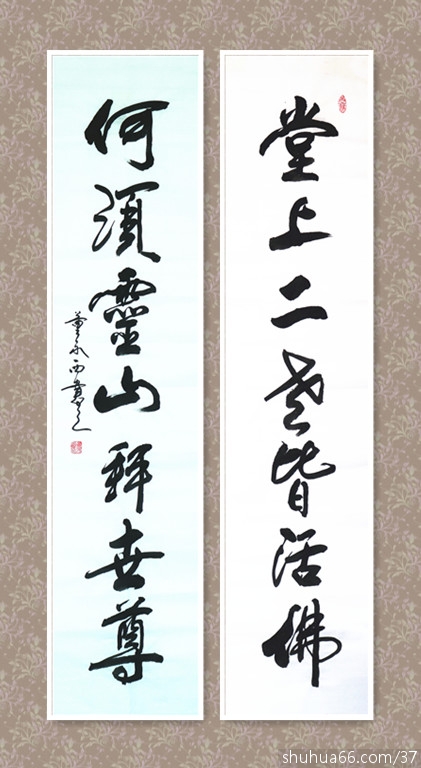 堂上二老皆活佛
何須靈山拜世尊
董永西書
shuhua66.com/37